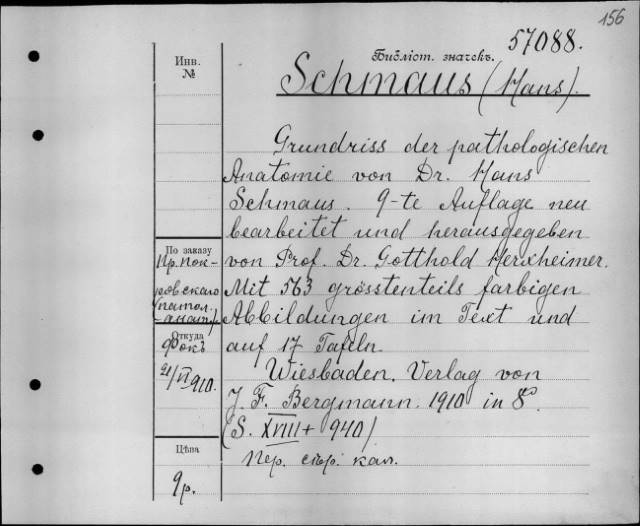 156
57088.
Библіот. значекъ.
Инв.
№
Schmaus (Hans).
Grundriss der pathologischen
Anatomie von Dr. Hans
Schmaus. 9-te Auflage neu
bearbeitet und herausgegeben
von Prof. Dr. Gotthold Herxheimer.
Mit 563 grösstenteils farbigen
Abbildungen im Text und
auf 17 Tafeln.
Wiesbaden. Verlag von
J. F. Bergmann. 1910 in 8°
(S. XVIII + 940)
Пер. скор. кал.
По заказу
Пр. Пок-
ровскаго
(патол.
-анат.)
Откуда
Фокъ
21/VI 910.
Цѣна
9р.